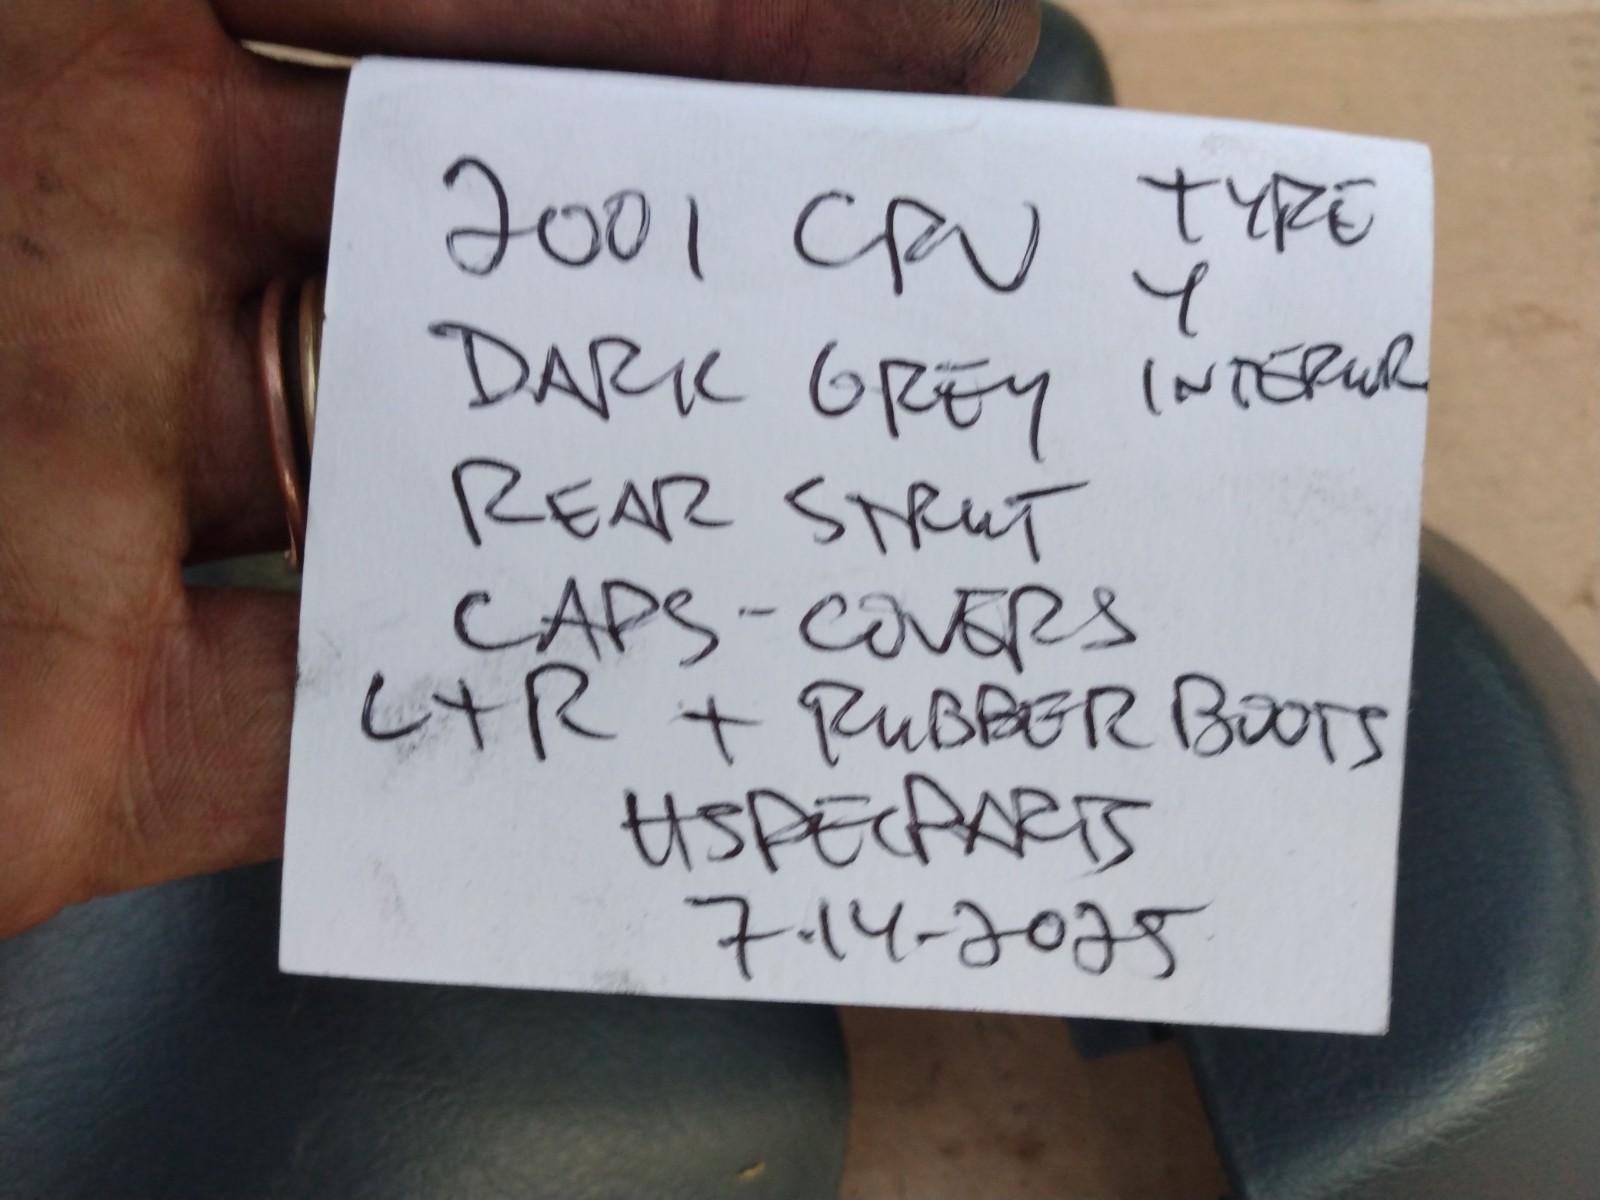 2001 CRV TYPE
Y
DARK GREY INTERIOR
REAR STRUT
CAPS - COVERS
L+R + RUBBER BOOTS
HSPECPARTS
7-14-2025